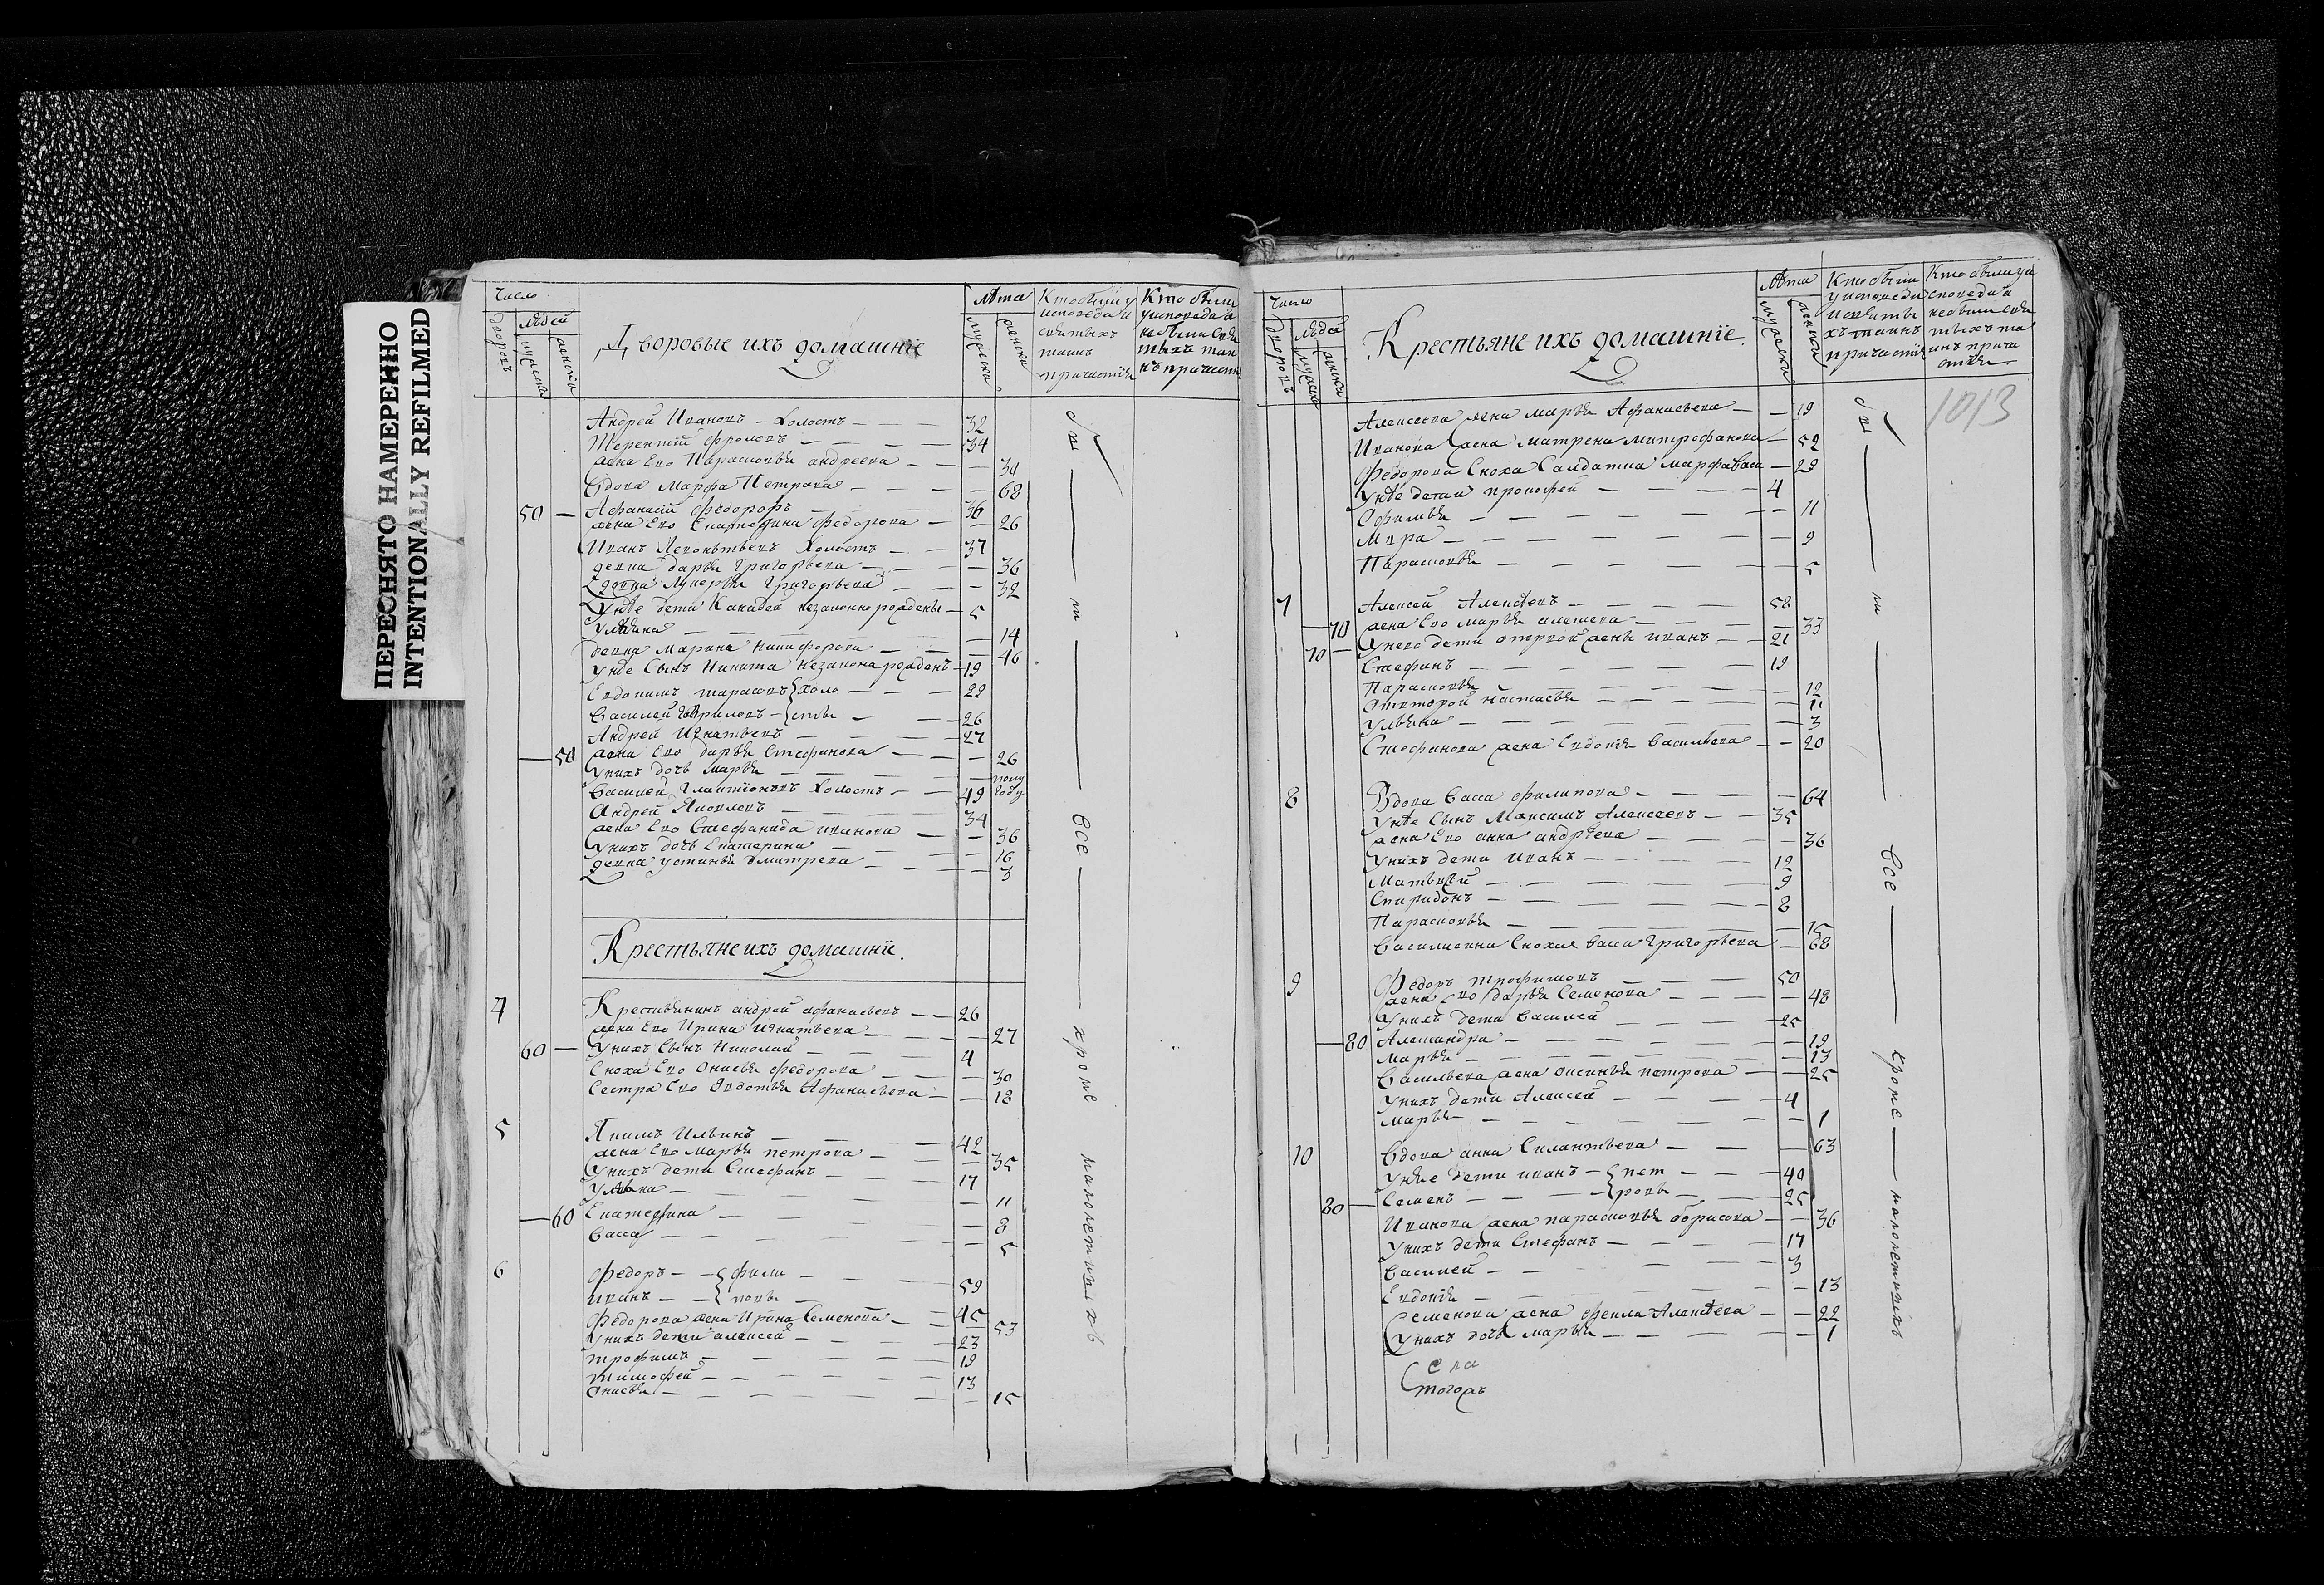 ПЕРЕСНЯТО НАМЕРЕННО
INTENTIONALLY REFILMED
Число
дворовъ
людей
мужеска
женска
Дворовые ихъ домашніе
Лѣта
мужеска
женска
Кто были у
исповеди и
святыхъ
таинъ
причастія
Кто были
у исповеди а
не были свя
тыхъ таи
нъ причаст
Андрей Ивановъ - холостъ - 32
Терентій Фроловъ - 34
жена Ево Парасковья андреева - 30
Вдова Марфа Петрова - 68
50 - Афанасій Федоровъ - 36
жена Ево Екатерина Федорова - 26
Иванъ Леонътьевъ Холостъ - 37
девка дарья Григорьева - 36
девка Лукерья Григорьева - 32
Унѣе дети незаконно рожденъ - 5
Ульяна - 14
девка Марина Никифорова - 46
Унѣе Сынъ Никита незакона рожденъ - 19
Евдокимъ тарасовъ {холо - 29
Василей Гавриловъ - {сты - 26
Андрей Игнатьевъ - 27
50 жена Ево дарья Стефанова - 26
Унихъ дочь Марья - полу
году
Василей Холостъ - 49
Андрей Яковлевъ - 34
жена Ево Стефанида иванова - 36
Унихъ дочь Екатерина - 16
девка устинья дмитрева - 3
Крестьяне ихъ домашніе.
4 Крестьянинъ андрей афанасьевъ - 26
жена Ево Ирина Игнатьева - 27
60 - Унихъ Сынъ Николай - 4
Сноха Ево Анисья Федорова - 30
Сестра Ево Авдотья Афанасьева - 18
5 Якимъ Ильинъ - 42
жена Ево Марья петрова - 35
Унихъ дети Стефанъ - 17
Ульяна - 11
60 Екатерина - 8
Васса - 5
6 Федоръ - {фили - 59
иванъ - {повы - 45
Федорова жена Ирина Семенова - 53
Унихъ дети алексей - 23
трофимъ - 19
Тимофей - 13
Анисья - 15
сіи
все
кроме
малолетныхъ
1013
Число
дворовъ
людей
мужеска
женска
Крестьяне ихъ домашніе.
Лѣта
мужеска
женска
Кто были
у исповеди
и святы
хъ таинъ
причастія
Кто были уи
споведи а
не были свя
тыхъ та
инъ прича
стія
Алексеева жена марья Афанасьева - 19
Иванова жена Матрена Митрофанова - 52
Федорова Сноха Салдатка Марфа Васи - 29
Унѣе дети прокофей - 4
Офимья - 11
Мавра - 9
Парасковья - 5
7 Алексей Алексѣевъ - 58
70 жена Ево Марья алексеева - 33
70 - Унево дети отпервой жены иванъ - 21
Стефанъ - 19
Парасковья - 12
Отвторой настасья - 11
Ульяна - 3
Стефанова жена Евдокія Васильева - 20
8 Вдова Васса филипова - 64
Унѣе Сынъ Максимъ Алексеевъ - 35
жена Ево анна андрѣева - 36
Унихъ дети иванъ - 12
Матьвей - 9
Спиридонъ - 8
Парасковья - 15
Сноха Васса Григорьева - 68
9 Федоръ трофимовъ - 50
жена Ево дарья Семенова - 48
Унихъ дети Василей - 25
80 Александра - 19
Марья - 13
Васильева жена аксинья петрова - 25
Унихъ дети Алексей - 4
Марья - 1
10 Вдова анна Силантьева - 63
Унѣе дети иванъ - {пет - 40
80 - Семенъ - {ровы - 25
Иванова жена парасковья борисова - 36
Унихъ дети Стефанъ - 17
Василей - 3
Евдокія - 13
Семенова жена фекла Алексѣева - 22
Унихъ дочь марья - 1
Села
тогожъ
сіи
все
кроме
малолетныхъ